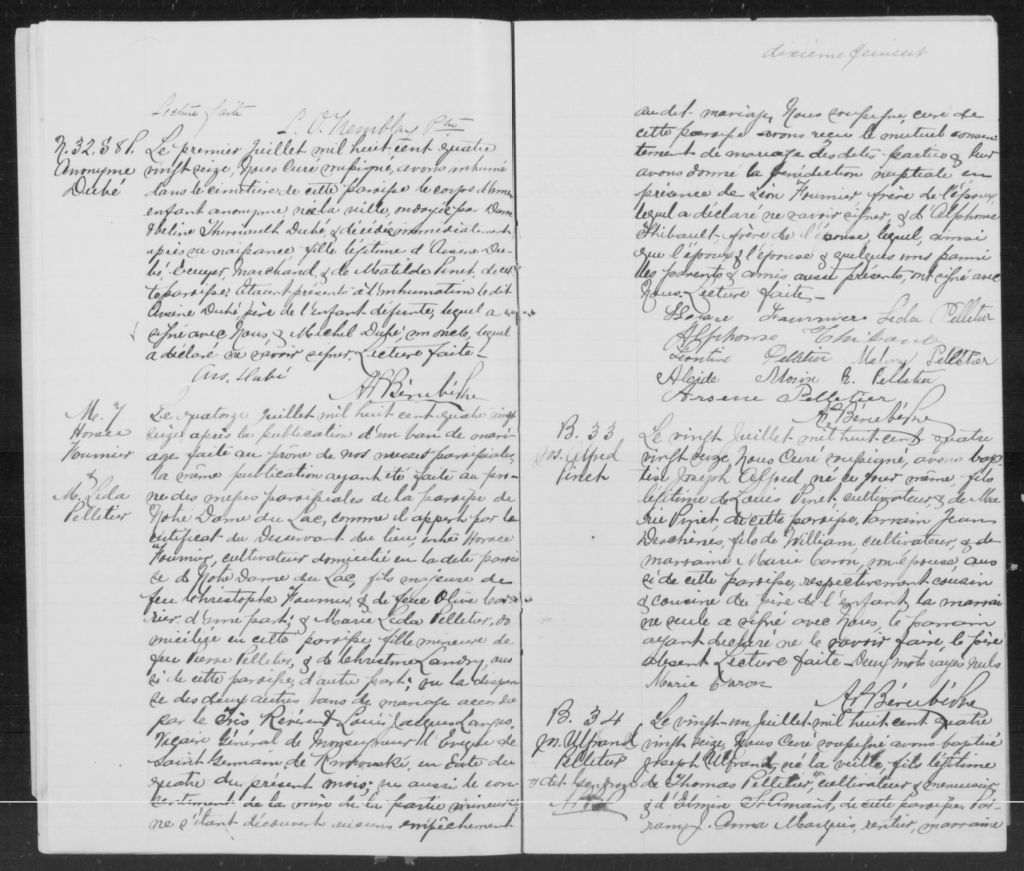 Lecture faite
L. O. Tremblay Ptre
N. 32. S 8f.
Anonyme
Dubé
Le premier Juillet mil huit cent quatre
vingt seize, Nous Curé soussigné, avons inhumé
dans le cimetière de cette paroisse le corps d'une
enfant anonyme, née la veille, ondoyée par Dame
Theriault Dubé, & décédée immédiatement
après sa naissance, fille légitime d'Arsène Du-
bé Ecuyer, Marchand, & de Matilde Pinet, de cet
te paroisse; Etaient présents à l'inhumation le dit
Arsène Dubé, père de l'enfant défunte, lequel a
signé avec Nous, & Michel Dubé, oncle, lequel
a déclaré ne savoir signer, Lecture faite -
Ars. Dubé
Af Bérubé Ptre
M. 7
Horace
Fournier
&
M. Léda
Pelletier
Le quatorze Juillet mil huit cent quatre vingt
seize après la publication d'un ban de mari-
age faite au prône de nos messes paroissiales,
la même publication ayant été faite au prô-
ne des messes paroissiales de la paroisse de
Notre Dame du Lac, comme il appert par le
certificat du Desservant du lieu, entre Horace
Fournier, cultivateur domicilié en la dite parois
se de Notre Dame du Lac, fils majeure de
feu Christophe Fournier & de feue Olive
d'une part; & Marie Léda Pelletier, do
miciliée en cette paroisse, fille mineure de
feu Pierre Pelletier, & de Christine Landry, aus
si de cette paroisse, d'autre part; vu la dispen
se des deux autres bans de mariage accordée
par le Très Révérend Louis Jacques Langis,
Vicaire Général de Monseigneur l'Evêque de
Saint Germain de Rimouski, en date du
quatre du présent mois; vu aussi le con-
sentement de la mère de la partie mineure;
ne s'étant découvert aucun empêchement
dixième feuillet
au dit mariage, Nous soussigné, curé de
cette paroisse avons reçu le mutuel consen
tement de mariage des dites parties & leur
avons donné la bénédiction nuptiale en
présence de Léon Fournier frère de l'époux
lequel a déclaré ne savoir signer, & d'Alphonse
Thibault, frère de l'épouse lequel, ainsi
que l'époux & l'épouse & quelques uns parmi
les parents & amis aussi présents, ont signé avec
Nous. Lecture faite -
Horace Fournier Léda Pelletier
Alphonse Thibault
Léontine Pelletier Pelletier
Alcide Morin R. Pelletier
Arsene Pelletier
Af Bérubé Ptre
B. 33
Jos. Alfred
Pinet
Le vingt Juillet mil huit cent quatre
vingt seize, Nous Curé soussigné, avons bap
tisé Joseph Alfred, né ce jour même, fils
légitime de Louis Pinet cultivateur, & de Ma
rie Pinet de cette paroisse, Parrain Jean
Deschênes, fils de William cultivateur, & de
marraine Marie Caron, son épouse, aus
si de cette paroisse, respectivement cousin
& cousine du père de l'enfant, la marrai
ne seule a signé avec Nous, le parrain
ayant déclaré ne le savoir faire, le père
absent Lecture faite - Deux mots rayés nuls
Marie Caron
Af Bérubé Ptre
B. 34
Jn. Ulfrand
Pelletier
dit
Le vingt-un Juillet mil huit cent quatre
vingt seize, Nous Curé soussigné avons baptisé
Joseph Ulfrand, né la veille, fils légitime
de Thomas Pelletier, cultivateur & menuisier,
& d'Edmire St. Amant, de cette paroisse. Par-
rain J. Anna Marquis, rentier, marraine